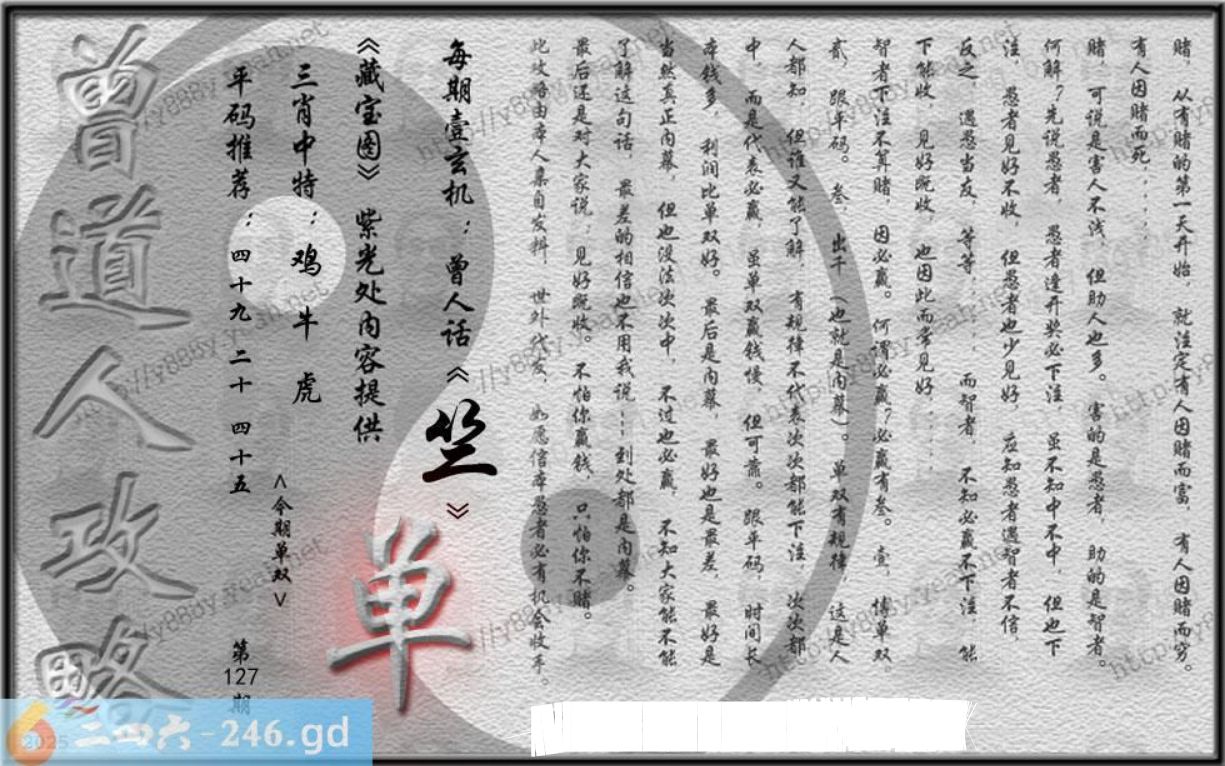 赌， 从有赌的第一天开始， 就注定有人因赌而富， 有人因赌而穷。
有人因赌而死......
赌， 可说是害人不浅， 但助人也多。 害的是愚者， 助的是智者。
何解？先说愚者， 愚者逢开奖必下注， 虽不知中不中， 但也下
注， 愚者见好不收， 但愚者也少见好， 应知愚者遇智者不信，
反之， 遇愚当友， 等等...， 而智者， 不知必赢不下注， 能
下能收， 见好既收， 也因此而常见好.....
智者下注不算赌， 因必赢。 何谓必赢？必赢有叁。 壹， 博单双
贰， 跟平码。 叁， 出千 （也就是内幕）。 单双有规律， 这是人
人都知， 但谁又能了解， 有规律不代表次次都能下注， 次次都
中， 而是代表必赢， 虽单双赢钱慢， 但可靠。 跟单码， 时间长
本钱多， 利润比单双好。 最后是内幕， 最好也是最差， 最好是
当然真正内幕， 但也没法次次中， 不过也必赢， 不知大家能不能
了解这句话， 最差的相信也不用我说....到处都是内幕。
最后还是对大家说：见好既收。 不怕你赢钱， 只怕你不赌。
此攻略由本人亲自发料， 世外代发， 如愿信本愚者必有机会收手。
每期壹玄机： 曾人话《竺》
《藏宝图》 紫光处内容提供
单
三肖中特： 鸡 牛 虎
<今期单双>
平码推荐： 四十九 二十 四十五
第127期
曾道人攻略
2025
二四六-246.gd
http://y888y.yeah.net